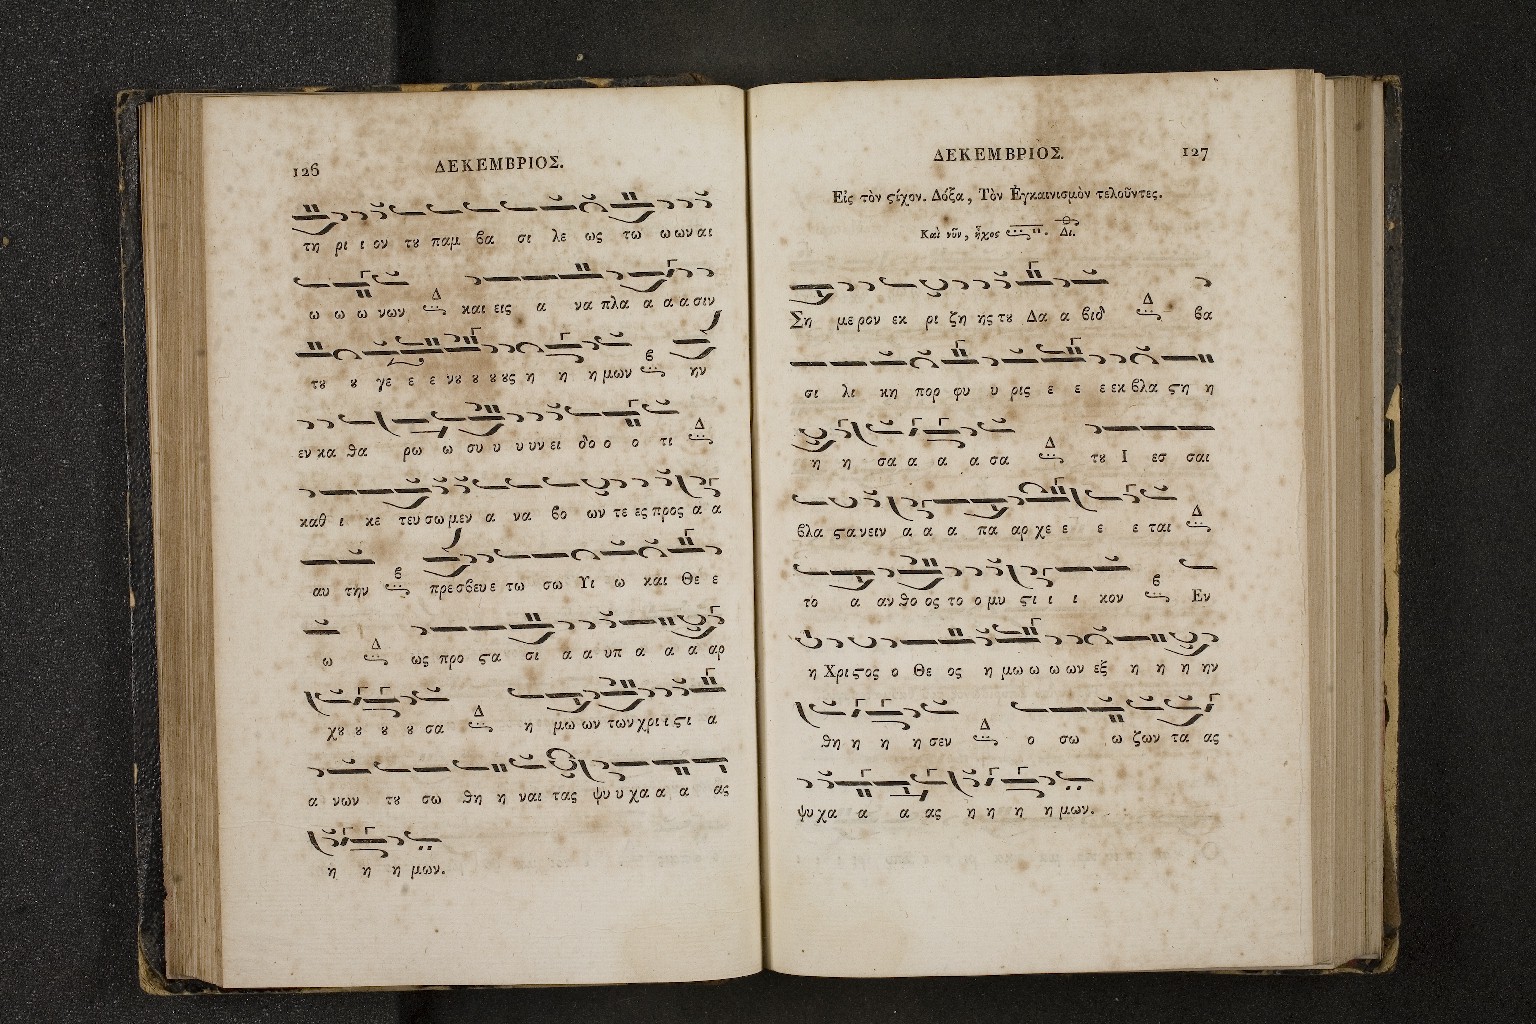 126 ΔΕΚΕΜΒΡΙΟΣ.
τη ρι ι ον τȣ παμ βα σι λε ως τω ω ων αι
ω ω ω νων Δ και εις α να πλα α α α σιν
τȣ ȣ γε ε ε νȣ ȣ ȣ ȣς η η η μων β ην
εν κα θα ρω ω συ υ υ υν ει δο ο ο τι Δ
καθ ι κε τευ σω μεν α να βο ων τε ες προς α α
αυ την β πρεσβευε τω σω Υι ω και Θε ε
ω Δ ως προ ϛα σι α α υπ α α α αρ
χȣ ȣ ȣ ȣ σα Δ η μω ων των χρι ι ϛι α
α νων τȣ σω θη η ναι τας ψυ υ χα α α ας
η η η μων.
ΔΕΚΕΜΒΡΙΟΣ. 127
Εἰς τὸν ϛίχον. Δόξα, Τὸν Ἐγκαινισμὸν τελοῦντες.
Καὶ νῦν, ἦχος Δι.
Ση με ρον εκ ρι ζη ης τȣ Δα α βιδ Δ βα
σι λι κη πορ φυ υ ρις ε ε ε εκ βλα ϛη η
η η σα α α α σα Δ τȣ Ι εσ σαι
βλα ϛα νειν α α α πα αρ χε ε ε ε ται Δ
το α αν θο ος το ο μυ ϛι ι ι κον β Εν
η Χριϛος ο Θε ος η μω ω ω ων εξ η η η ην
θη η η η σεν Δ ο σω ω ζων τα ας
ψυ χα α α ας η η η η μων.